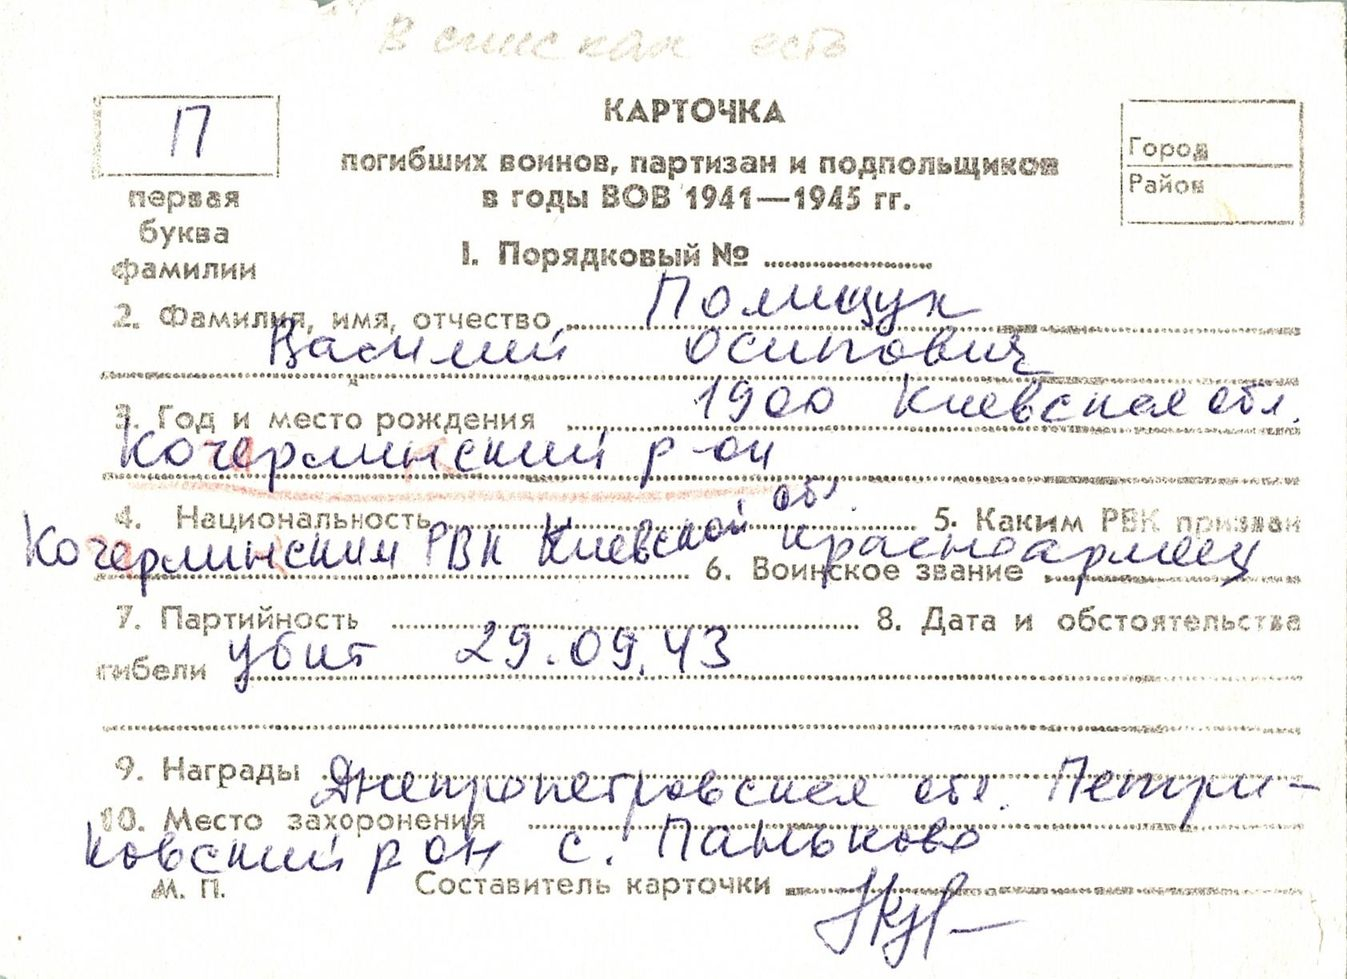 В списках есть
П
КАРТОЧКА
погибших воинов, партизан и подпольщиков
в годы ВОВ 1941—1945 гг.
Город
Район
первая
буква
фамилии
I. Порядковый №
2. Фамилия, имя, отчество Полищук
Василий Осипович
3. Год и место рождения 1900 Киевская обл.
Кочерминский р-он
4. Национальность 5. Каким РВК призван
Кочерминским РВК Киевской обл.
6. Воинское звание красноармеец
7. Партийность 8. Дата и обстоятельства
гибели убит 29.09.43
9. Награды
10. Место захоронения Днепропетровская обл. Петри-
ковский р он с. Паньково
М. П. Составитель карточки